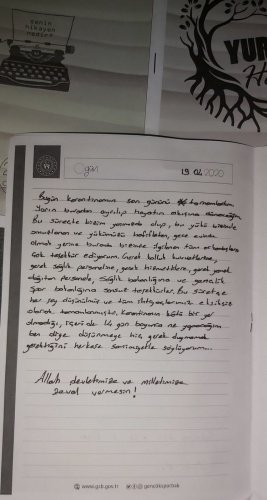 senin
hikayen
nedir?
YUR
H
gün
19.04.2020
Bugün karantinamın son gününü tamamladım.
Yarın buradan ayrılıp hayatın akışına döneceğim.
Bu süreçte bizim yanımızda olup, bu yükü bizimle
omuzlanan ve yükümüzü hafifleten, gece evinde
olmak yerine burada bizimle ilgilenen tüm arkadaşlara
çok teşekkür ediyorum. Gerek kolluk kuvvetlerine,
gerek sağlık personeline, gerek hizmetlilere, gerek yemek
dağıtan personele, Sağlık bakanlığına ve gençlik
Spor bakanlığına sonsuz teşekkürler. Bu süreçte
her şey düşünülmüş ve tüm ihtiyaçlarımız eksiksiz
olarak tamamlanmıştır. Karantinanın kötü bir yer
olmadığı, içeride 14 gün boyunca ne yapacağım
ben diye düşünmeye hiç gerek duymamak
gerektiğini herkese samimiyetle söylüyorum.
Allah devletimize ve milletimize
zeval vermesin!
www.gsb.gov.tr gencliksporbak